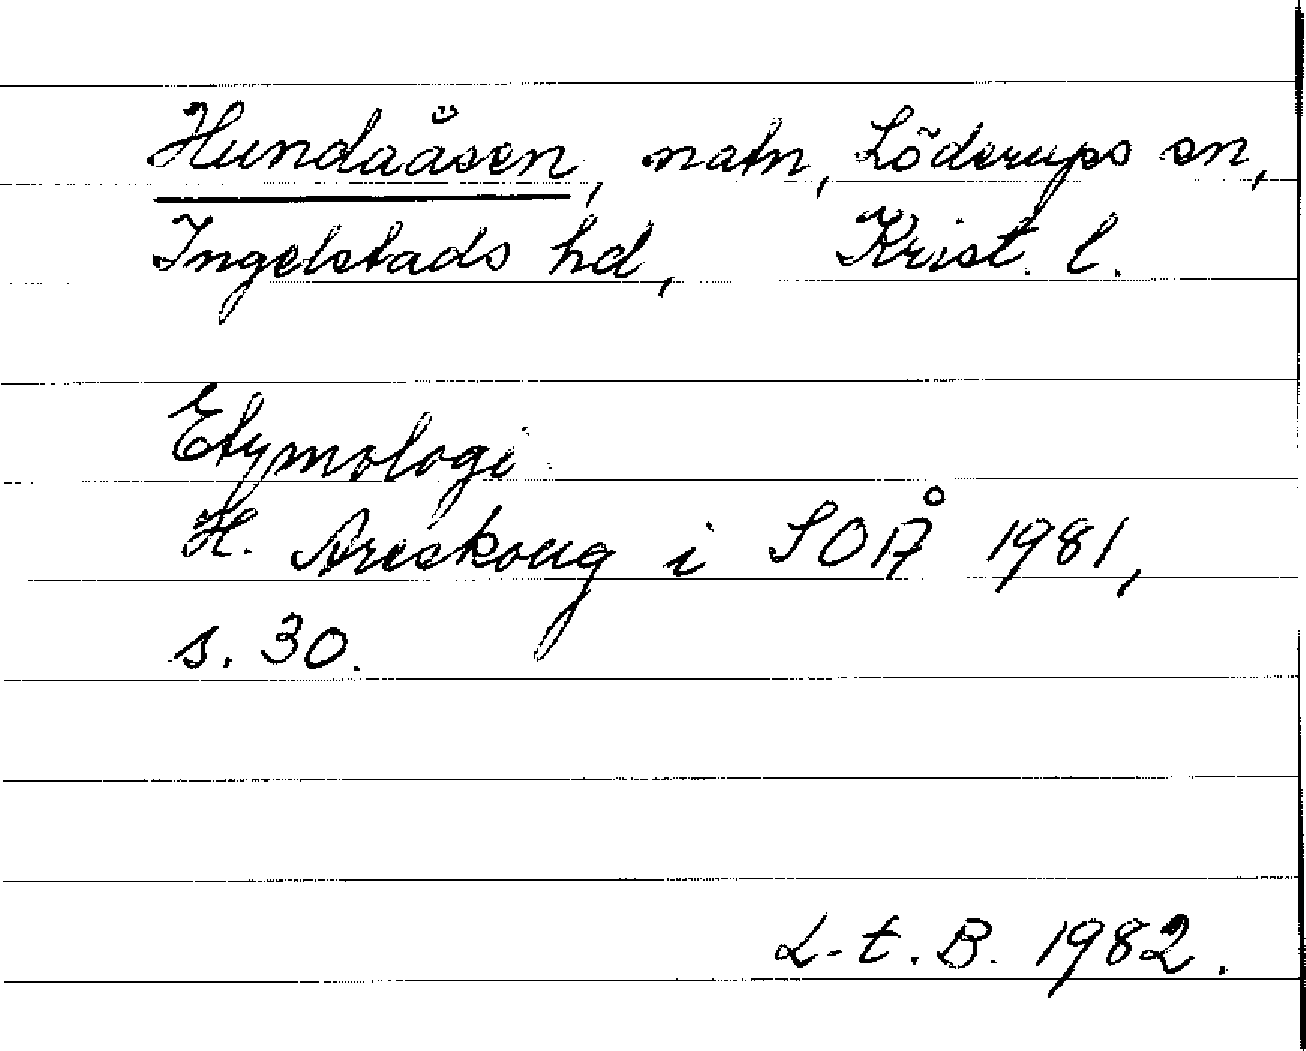 Hundaåsen, natn, Löderups sn,
Ingelstads hd, Krist. l.
Etymologi
H. Areskoug i SOÅ 1981,
s. 30.
L-t. B. 1982.